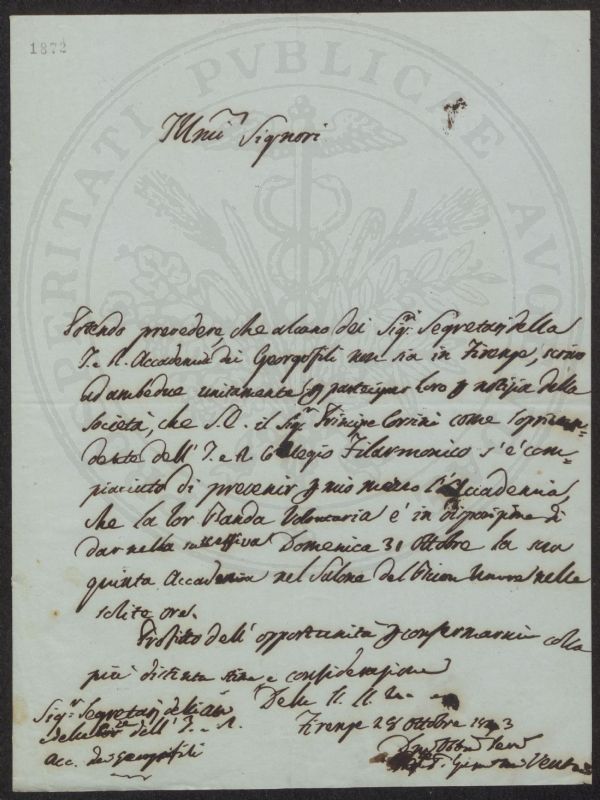 1872
PROSPERITATI PVBLICAE AVG
Illmi Signori
Potendo prevedere che alcuno dei Sigri Segretarj della
I. e R. Accademia dei Georgofili non sia in Firenze, scrivo
ad ambedue unitamente p partecipar loro p notizia della
Società, che S. E. il Sigr Principe Corsini come Soprinten=
dente dell' I. e R. Collegio Filarmonico s'è com=
piaciuto di prevenir p mio mezzo l'Accademia,
che la lor Banda Volontaria è in disposizione di
dar nella successiva Domenica 31 Ottobre la sua
quinta Accademia nel Salone del Buon Umore nelle
solite ore.
Profitto dell' opportunità p confermarmi colla
più distinta stima e considerazione
Delle
Firenze 28 Ottobre
Sigri Segretarj
dell' I. e R.
Acc. dei Georgofili